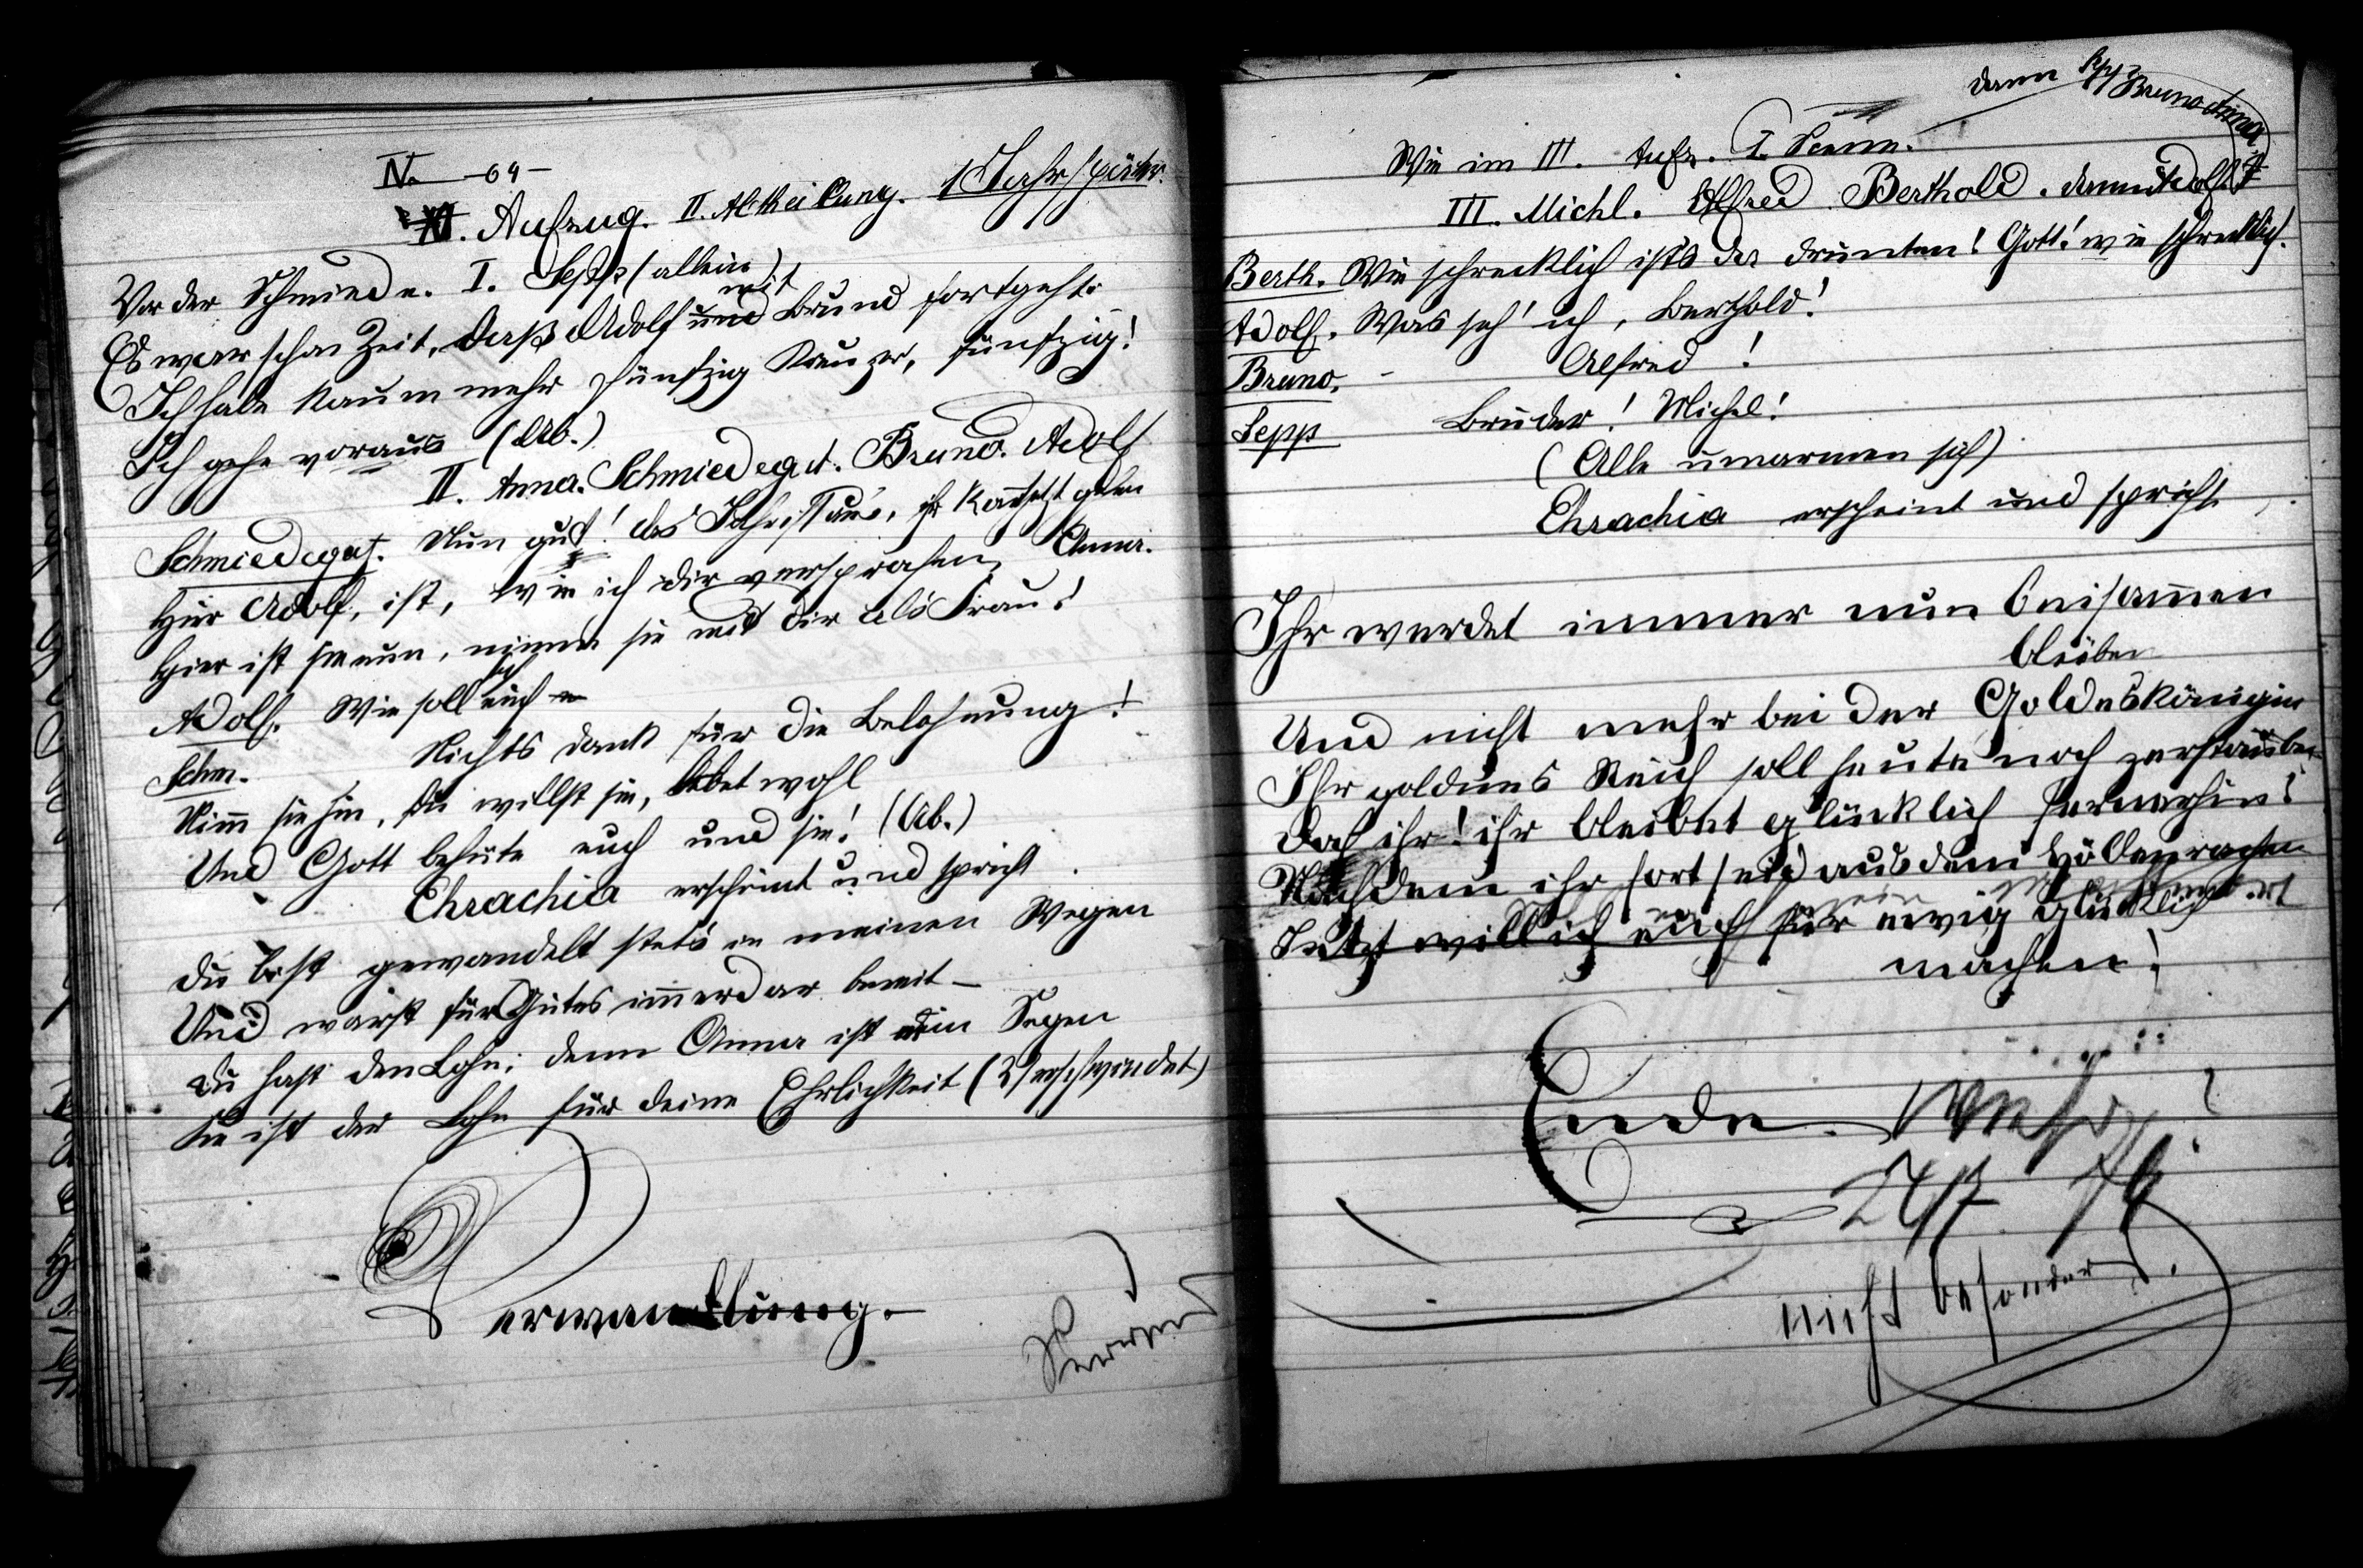 IV. -64-
VI. Aufzug. II. Abtheilung. 1 Jahr später.
Vor der Schmiede. I. Sepp (allein)
Es war schon Zeit, daß Adolf mit Bruno fortgeht.
Ich habe kaum mehr fünfzig Kreuzer, fünfzig!
Ich gehe voraus (Ab.)
II. Anna. Schmiedegut. Bruno. Adolf
Schmiedegut. Nun gut! das Jahr ist aus, ihr könt jetzt gehen
Hier Adolf, ist, wie ich dir versprochen, Anna.
Hier ist sie nun, nimm sie mit dir als Frau!
Adolf. Wie soll ich euch
Schm. Nichts dank für die Belohnung!
Nimm sie hin, du willst sie, lebet wohl
Und Gott behüte euch und sie! (Ab.)
Ehrachia erscheint und spricht
Du bist gewandelt stets in meinen Wegen
Und warst für Gutes immerdar bereit –
Du hast den Lohn; denn Anna ist dein Segen
Sie ist der Lohn für deine Ehrlichkeit (Verschwindet)
Verwandlung.
dann Sepp Bruno Anna
Wie im III. Aufz. I. Scene.
III. Michl. Alfred Berthold. dann Adolf
Berth. Wie schrecklich ist's da drunten! Gott! wie schrecklich.
Adolf. Was seh' ich, Berthold!
Bruno. - Alfred!
Sepp Bruder! Michel!
(Alle umarmen sich)
Ehrachia erscheint und spricht
Ihr werdet immer nun beisammen
bleiben
Und nicht mehr bei der Goldeskönigin
Ihr goldnes Reich soll heute noch zerstäuben
Doch ihr! ihr bleibet glücklich fernerhin!
Nachdem ihr fort seid aus dem Höllenrachen
Jetzt will ich euch für ewig glücklich
machen!
Ende.
24/7 76
nicht besonders.